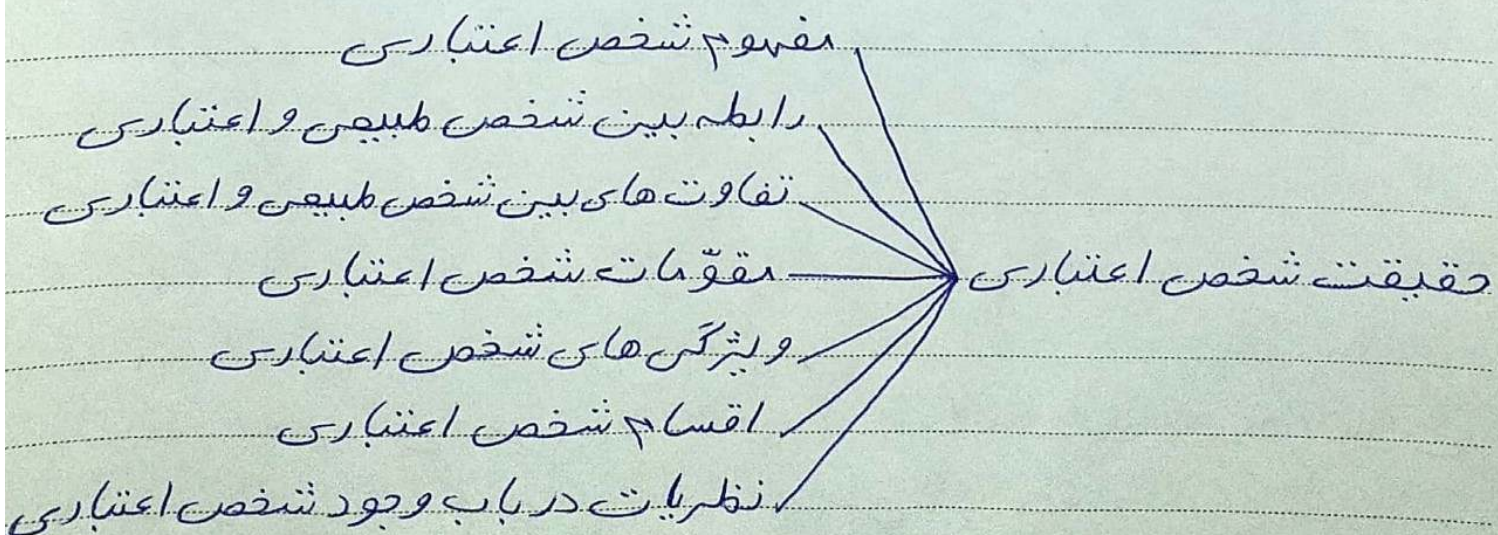 حقیقت شخص اعتباری
مفهوم شخص اعتباری
رابطه بین شخص طبیعی و اعتباری
تفاوت های بین شخص طبیعی و اعتباری
مقوّمات شخص اعتباری
ویژگی های شخص اعتباری
اقسام شخص اعتباری
نظریات در باب وجود شخص اعتباری